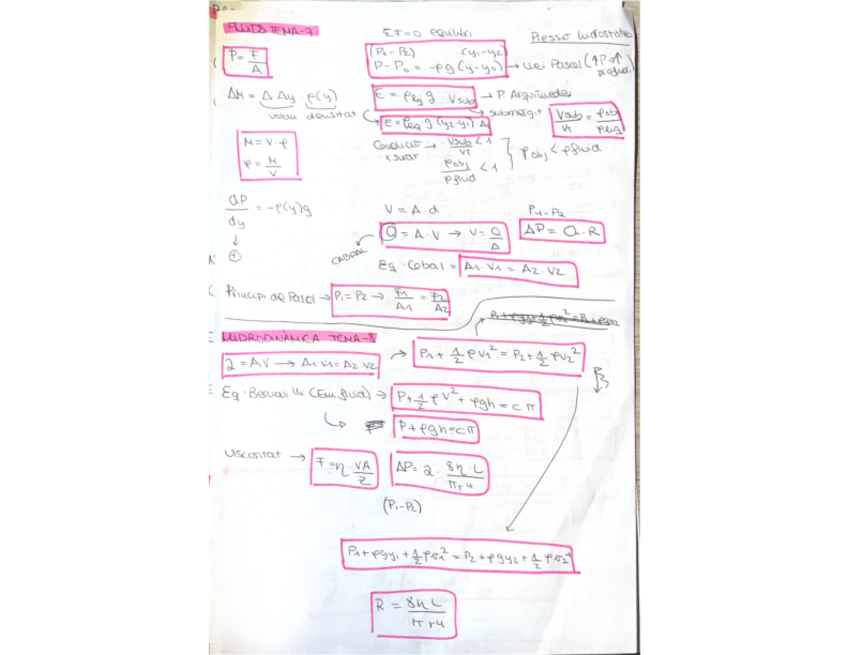 FLUIDS TEMA-7
ΣF=0 equilibri
Pressió hidrostàtica
P = F/A
(P1-P2) (y1-y2)
P-P0 = -ρg(y-y0) → Llei Pascal (↑P→↑
ΔM = Δ·Δy · ρ(y)
volum densitat
E = ρliq g · Vsub → P. Arquímedes
→ submergit
E = ρliq g (y2-y1) A
Vsub/VT = ρobj/ρliq
M = V·ρ
ρ = M/V
Condició → Vsub/VT < 1
x surar ρobj/ρfluid < 1
ρobj < ρfluid
dP/dy = -ρ(y)g
↓
⊕
V = A·d
P1-P2
Q = A·V → V = Q/A
ΔP = Q·R
CABDAL
Eq. Cabal = A1·V1 = A2·V2
Principi de Pascal → P1 = P2 → F1/A1 = F2/A2
HIDRODINÀMICA TEMA-8
Q = AV → A1V1 = A2·V2
→ P1 + 1/2 ρv1² = P2 + 1/2 ρv2²
Eq. Bernoulli (Em fluid) → P + 1/2 ρV² + ρgh = cπ
P + ρgh = cπ
Viscositat → F = η · VA/Z
ΔP = Q · 8ηL/πr4
(P1-P2)
P1 + ρgy1 + 1/2 ρv1² = P2 + ρgy2 + 1/2 ρv2²
R = 8ηL/πr4